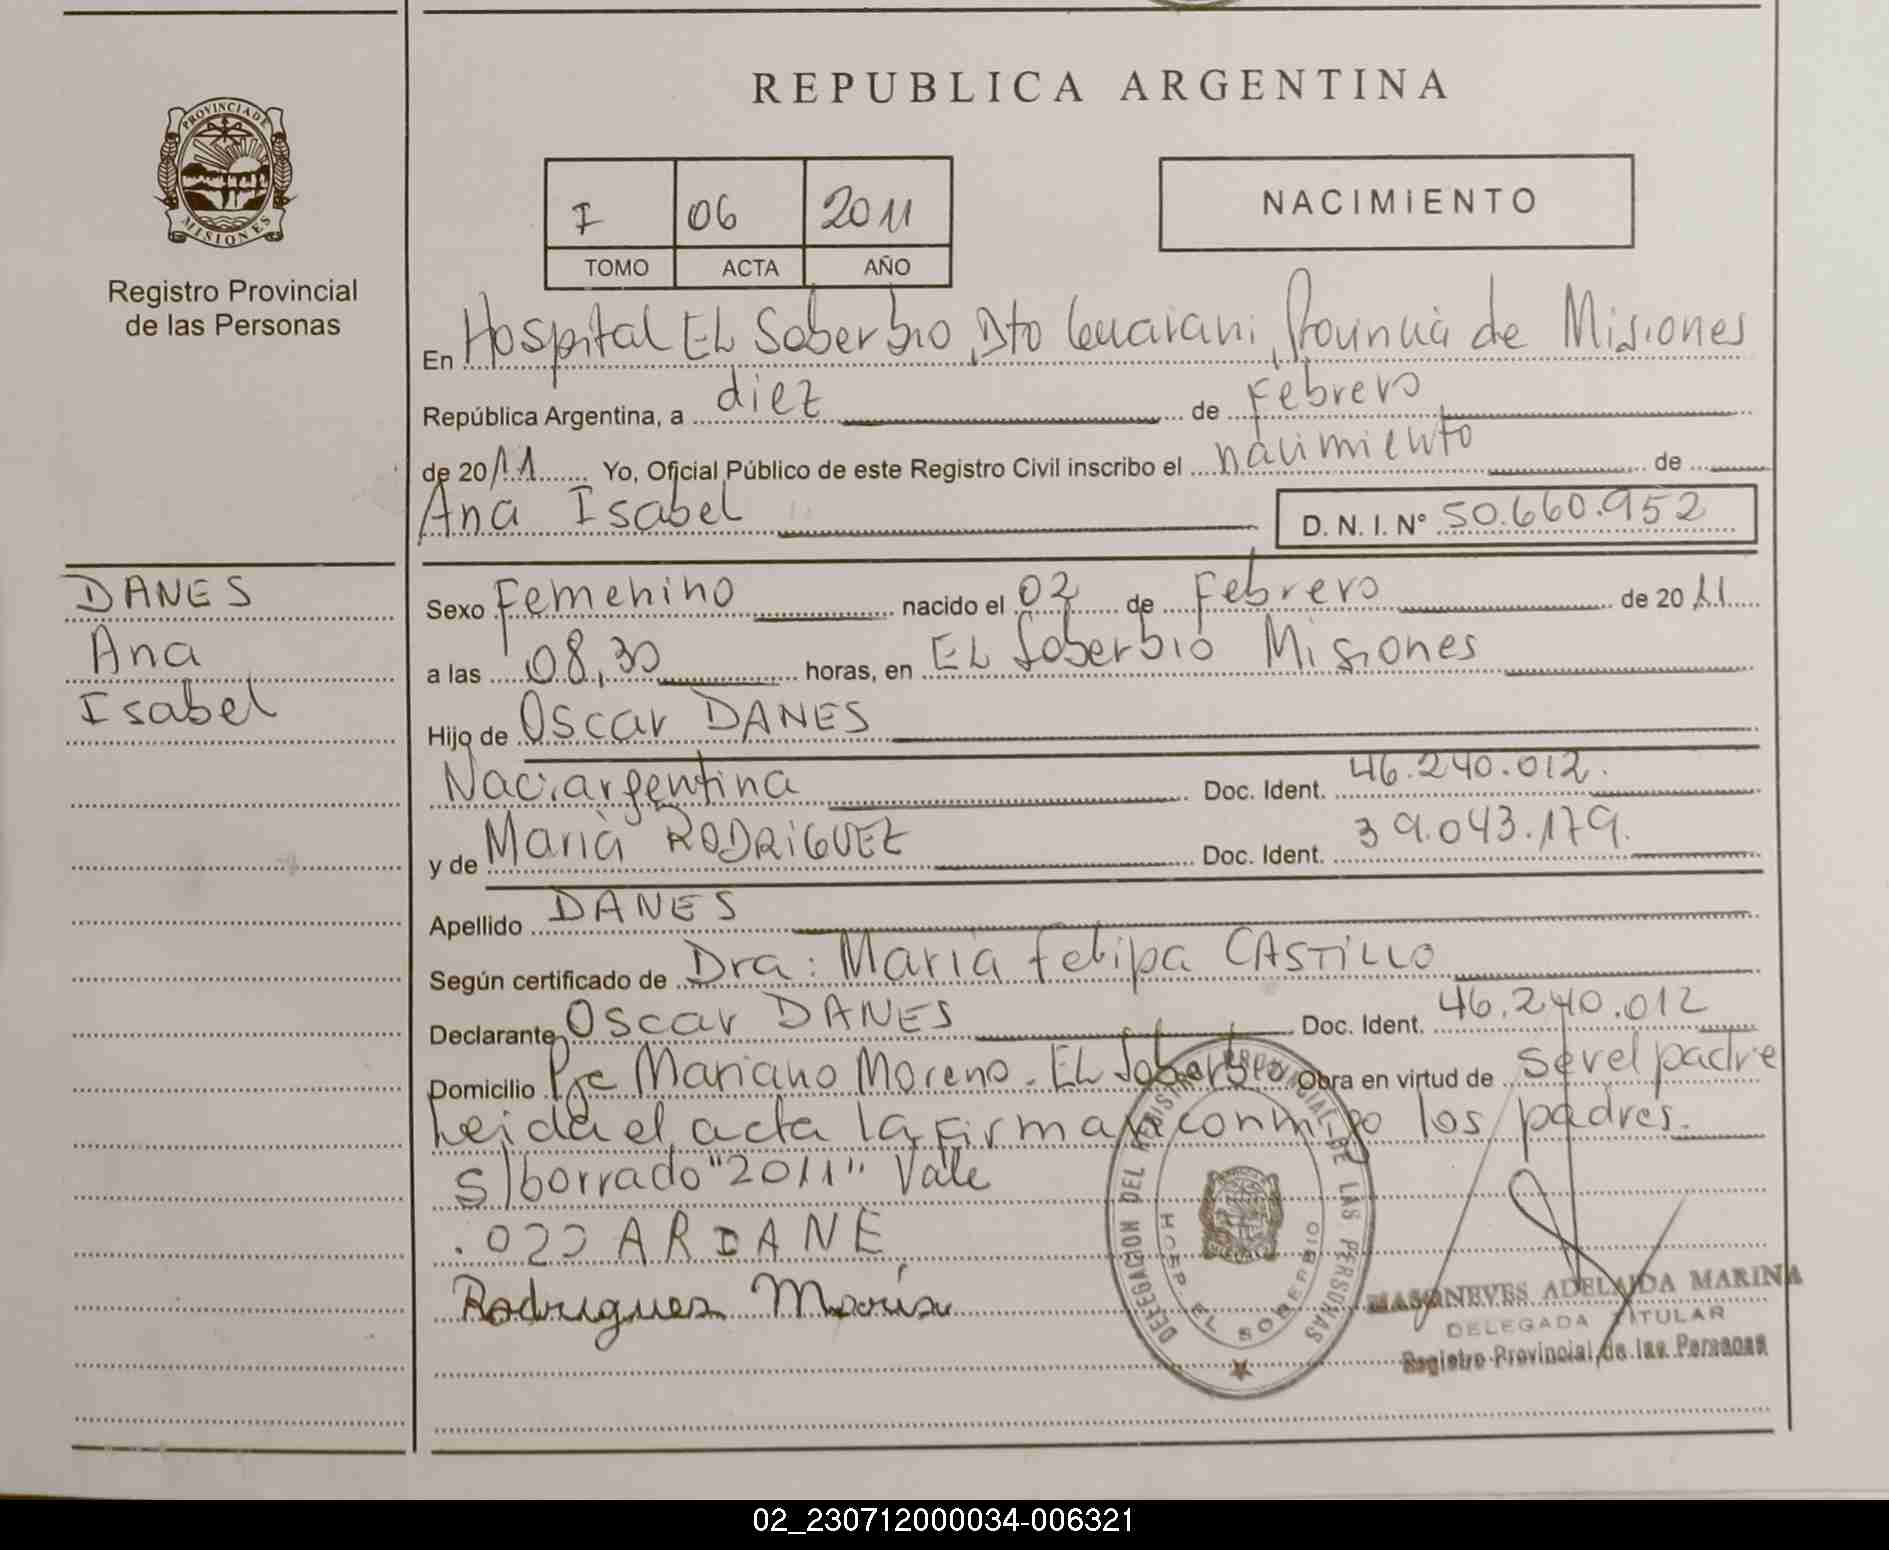 REPUBLICA ARGENTINA
PROVINCIA DE
MISIONES
Registro Provincial
de las Personas
I 06 2011
TOMO ACTA AÑO
NACIMIENTO
En Hospital EL Soberbio, Dto Guarani, Provincia de Misiones
República Argentina, a diez de Febrero
de 2011 Yo, Oficial Público de este Registro Civil inscribo el nacimiento de
Ana Isabel D. N. I. N° 50.660.952
DANES
Ana
Isabel
Sexo Femenino nacido el 02 de Febrero de 2011
a las 08,30 horas, en EL Soberbio Misiones
Hijo de Oscar DANES
Naci. argentina Doc. Ident. 46.240.012.
y de Maria RODRIGUEZ Doc. Ident. 39.043.179.
Apellido DANES
Según certificado de Dra: Maria Felipa CASTILLO
Declarante Oscar DANES Doc. Ident. 46.240.012
Domicilio Pje Mariano Moreno. EL Soberbio Obra en virtud de ser el padre
Leida el acta la firma conmigo los padres.
S/borrado "2011" Vale
Rodrigues Maria
DELEGACION DEL REGISTRO PROVINCIAL DE LAS PERSONAS
HOSP. EL SOBERBIO
MASONEVES ADELAIDA MARINA
DELEGADA TITULAR
Registro Provincial de las Personas
02_230712000034-006321